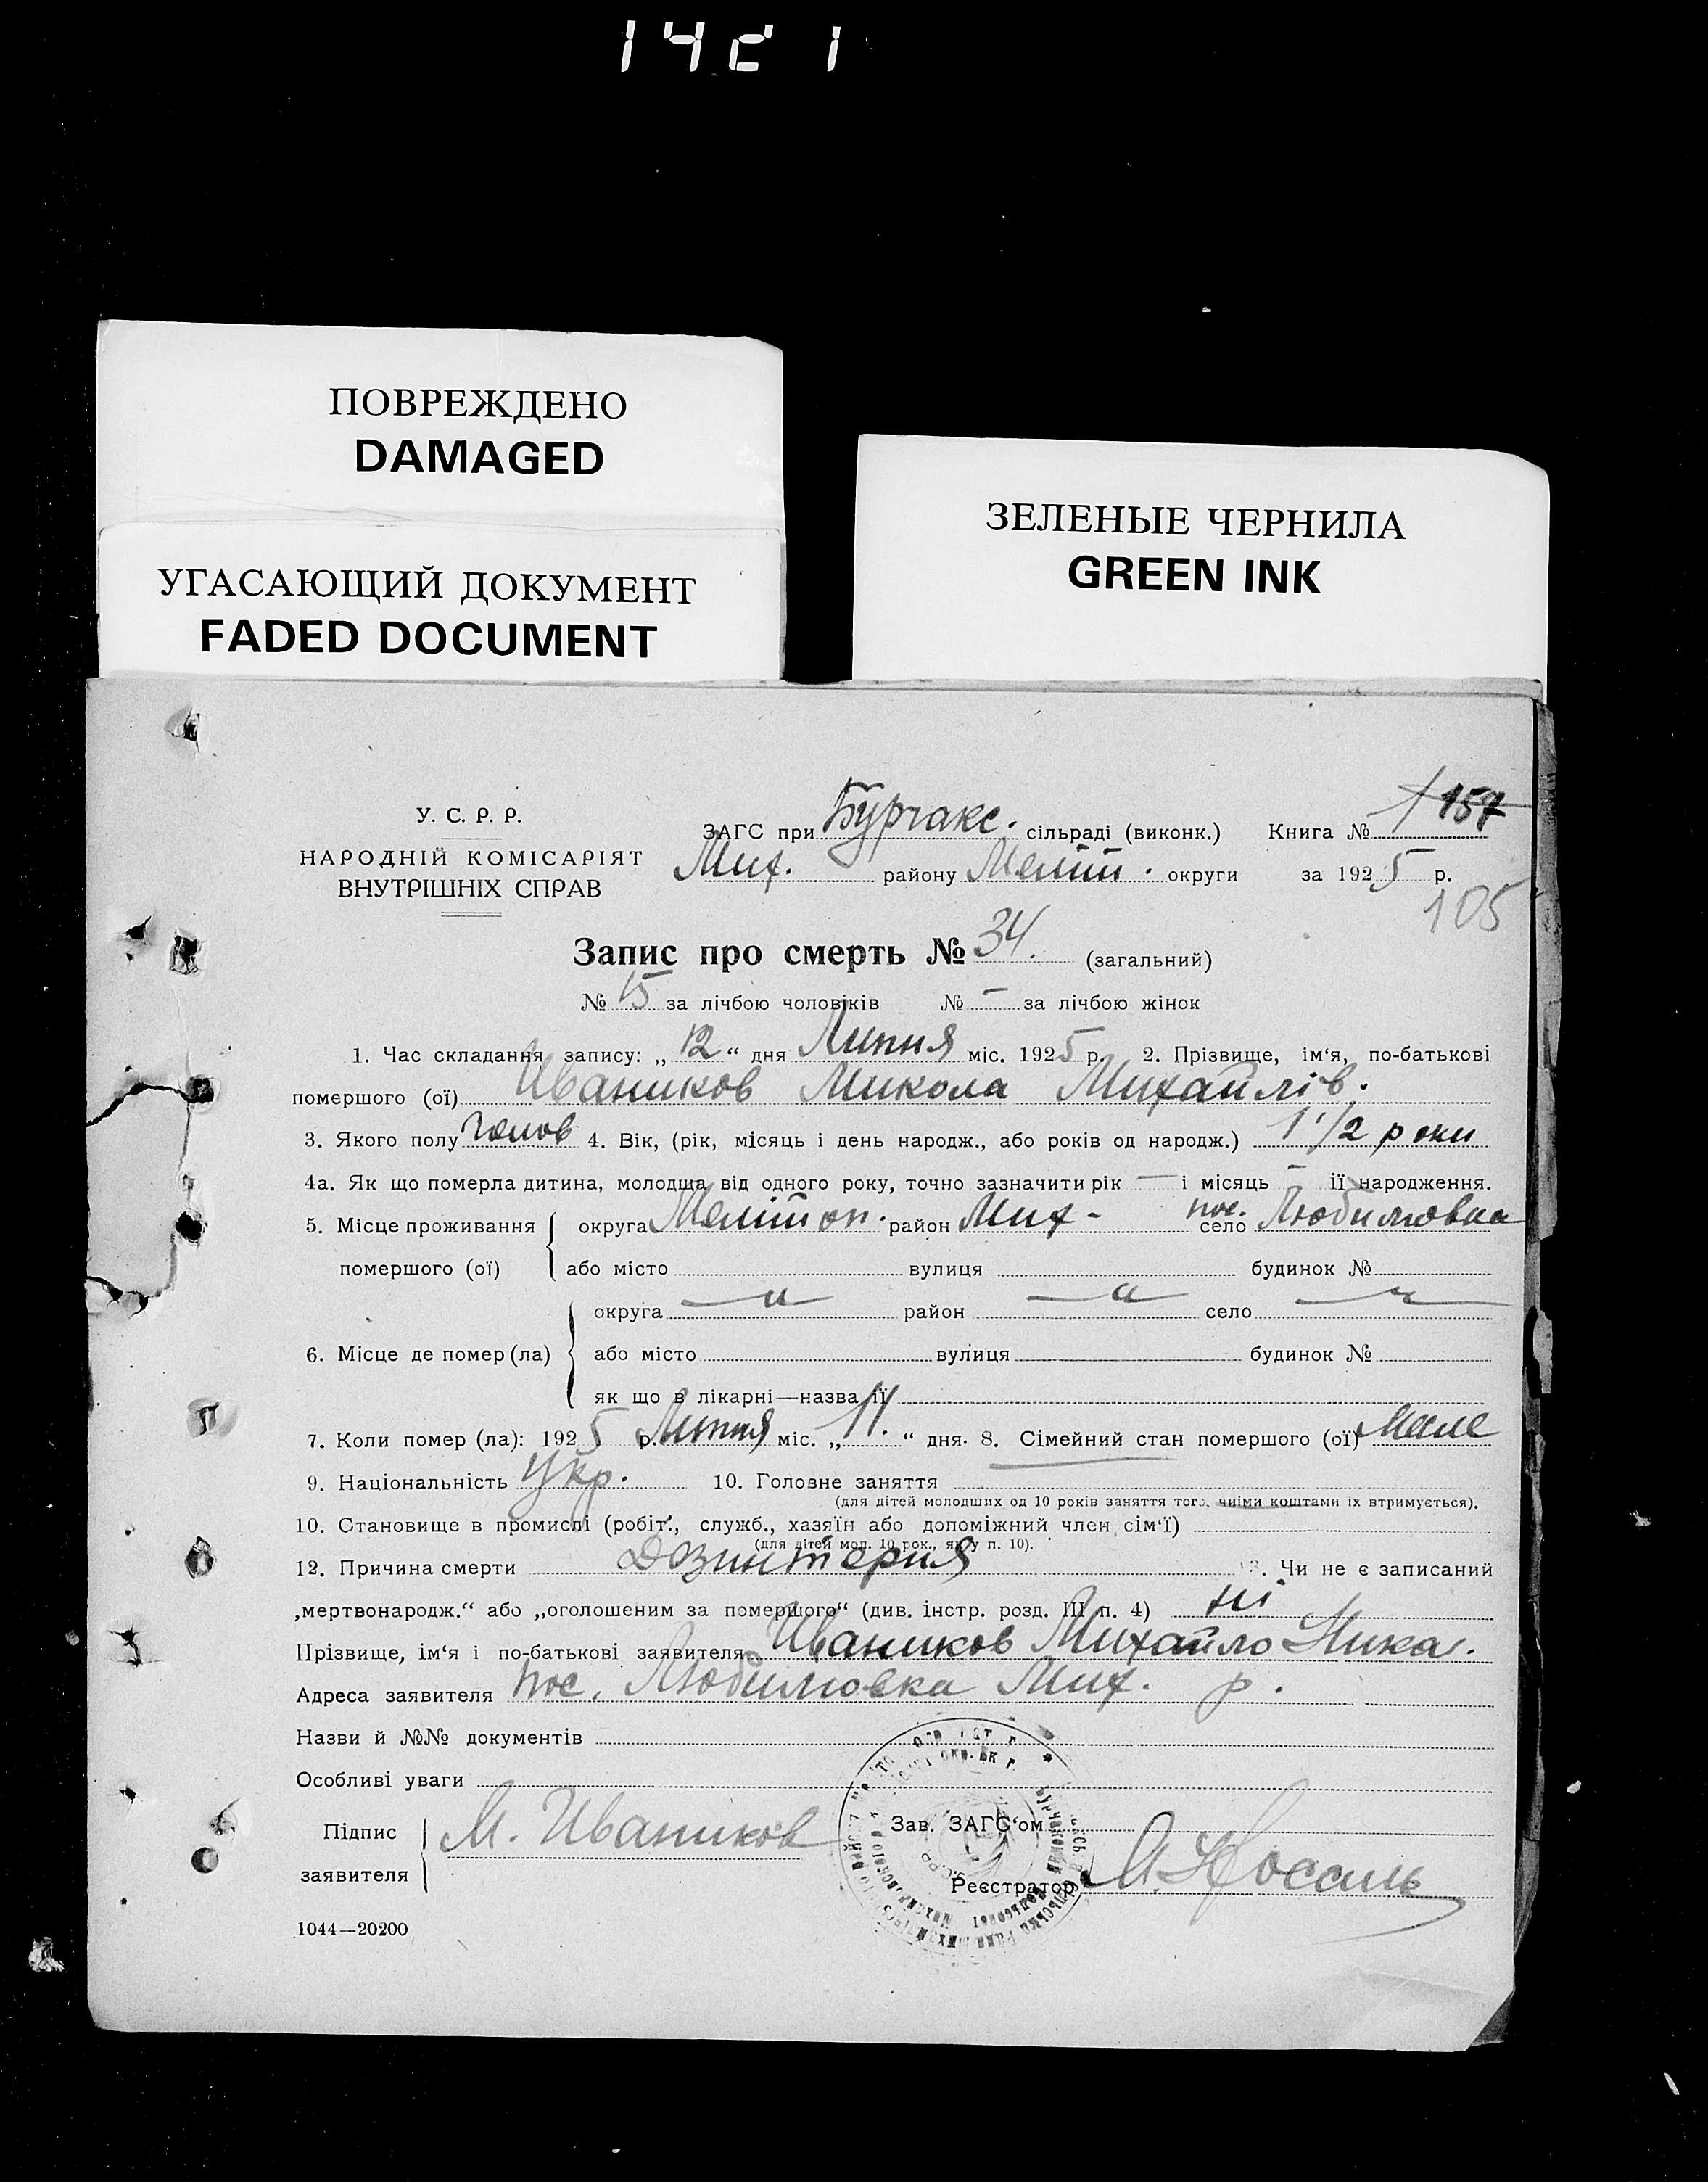 ПОВРЕЖДЕНО
DAMAGED
УГАСАЮЩИЙ ДОКУМЕНТ
FADED DOCUMENT
ЗЕЛЕНЫЕ ЧЕРНИЛА
GREEN INK
У. С. Р. Р.
НАРОДНІЙ КОМІСАРІЯТ
ВНУТРІШНІХ СПРАВ
ЗАГС при Бурчакс. сільраді (виконк.) Книга № 157
Мих. району Меліт. округи за 1925 р.
105
Запис про смерть № 34. (загальний)
№ 15 за лічбою чоловіків № — за лічбою жінок
1. Час складання запису: „12“ дня Липня міс. 1925 р. 2. Прізвище, ім‘я, по-батькові
помершого (ої) Иваников Микола Михайлів.
3. Якого полу чолов 4. Вік, (рік, місяць і день народж., або років од народж.) 1 1/2 роки
4а. Як що померла дитина, молодща від одного року, точно зазначити рік — і місяць — її народження.
5. Місце проживання округа Мелітоп. район Мих - пос. село Любимовка
помершого (ої) або місто вулиця будинок №
округа —„— район —„— село —„—
6. Місце де помер (ла) або місто вулиця будинок №
як що в лікарні—назва її
7. Коли помер (ла): 1925 р. Липня міс. „11.“ дня. 8. Сімейний стан помершого (ої) мале
9. Національність Укр. 10. Головне заняття
(для дітей молодших од 10 років заняття того, чиїми коштами їх втримується).
10. Становище в промислі (робіт., служб., хазяїн або допоміжний член сім‘ї)
(для дітей мол. 10 рок., як у п. 10).
12. Причина смерти Дозинтерия 13. Чи не є записаний
„мертвонародж.“ або „оголошеним за помершого“ (див. інстр. розд. III п. 4) ні
Прізвище, ім‘я і по-батькові заявителя Иваников Михайло Ника.
Адреса заявителя пос. Любимовка Мих. р.
Назви й №№ документів
Особливі уваги
Підпис заявителя М. Иваников
Зав. ЗАГС‘ом
Реєстратор
1044—20200